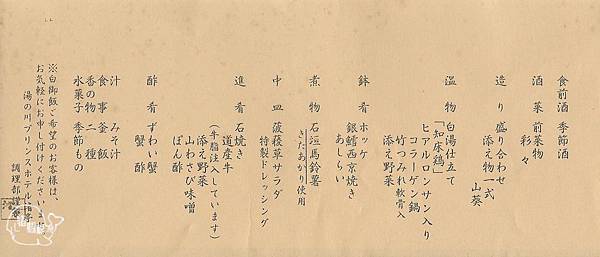 食前酒 季節酒
酒菜 前菜物
彩々
造り 盛り合わせ
添え物一式
山葵
温物 白湯仕立て
「知床鶏」
ヒアルロンサン入り
コラーゲン鍋
竹つみれ軟骨入
添え野菜
鉢肴 ホッケ
銀鱈西京焼き
あしらい
煮物 石垣馬鈴薯
きたあかり使用
中皿 菠薐草サラダ
特製ドレッシング
進肴 石焼き
道産牛
(牛脂注入しています)
添え野菜
山わさび味噌
ぽん酢
酢肴 ずわい蟹
蟹酢
汁 みそ汁
食事 釜飯
香の物 二種
水菓子 季節もの
※白御飯ご希望のお客様は、
お気軽にお申し付けくださいませ。
湯の川プリンスホテル渚亭
調理部謹製